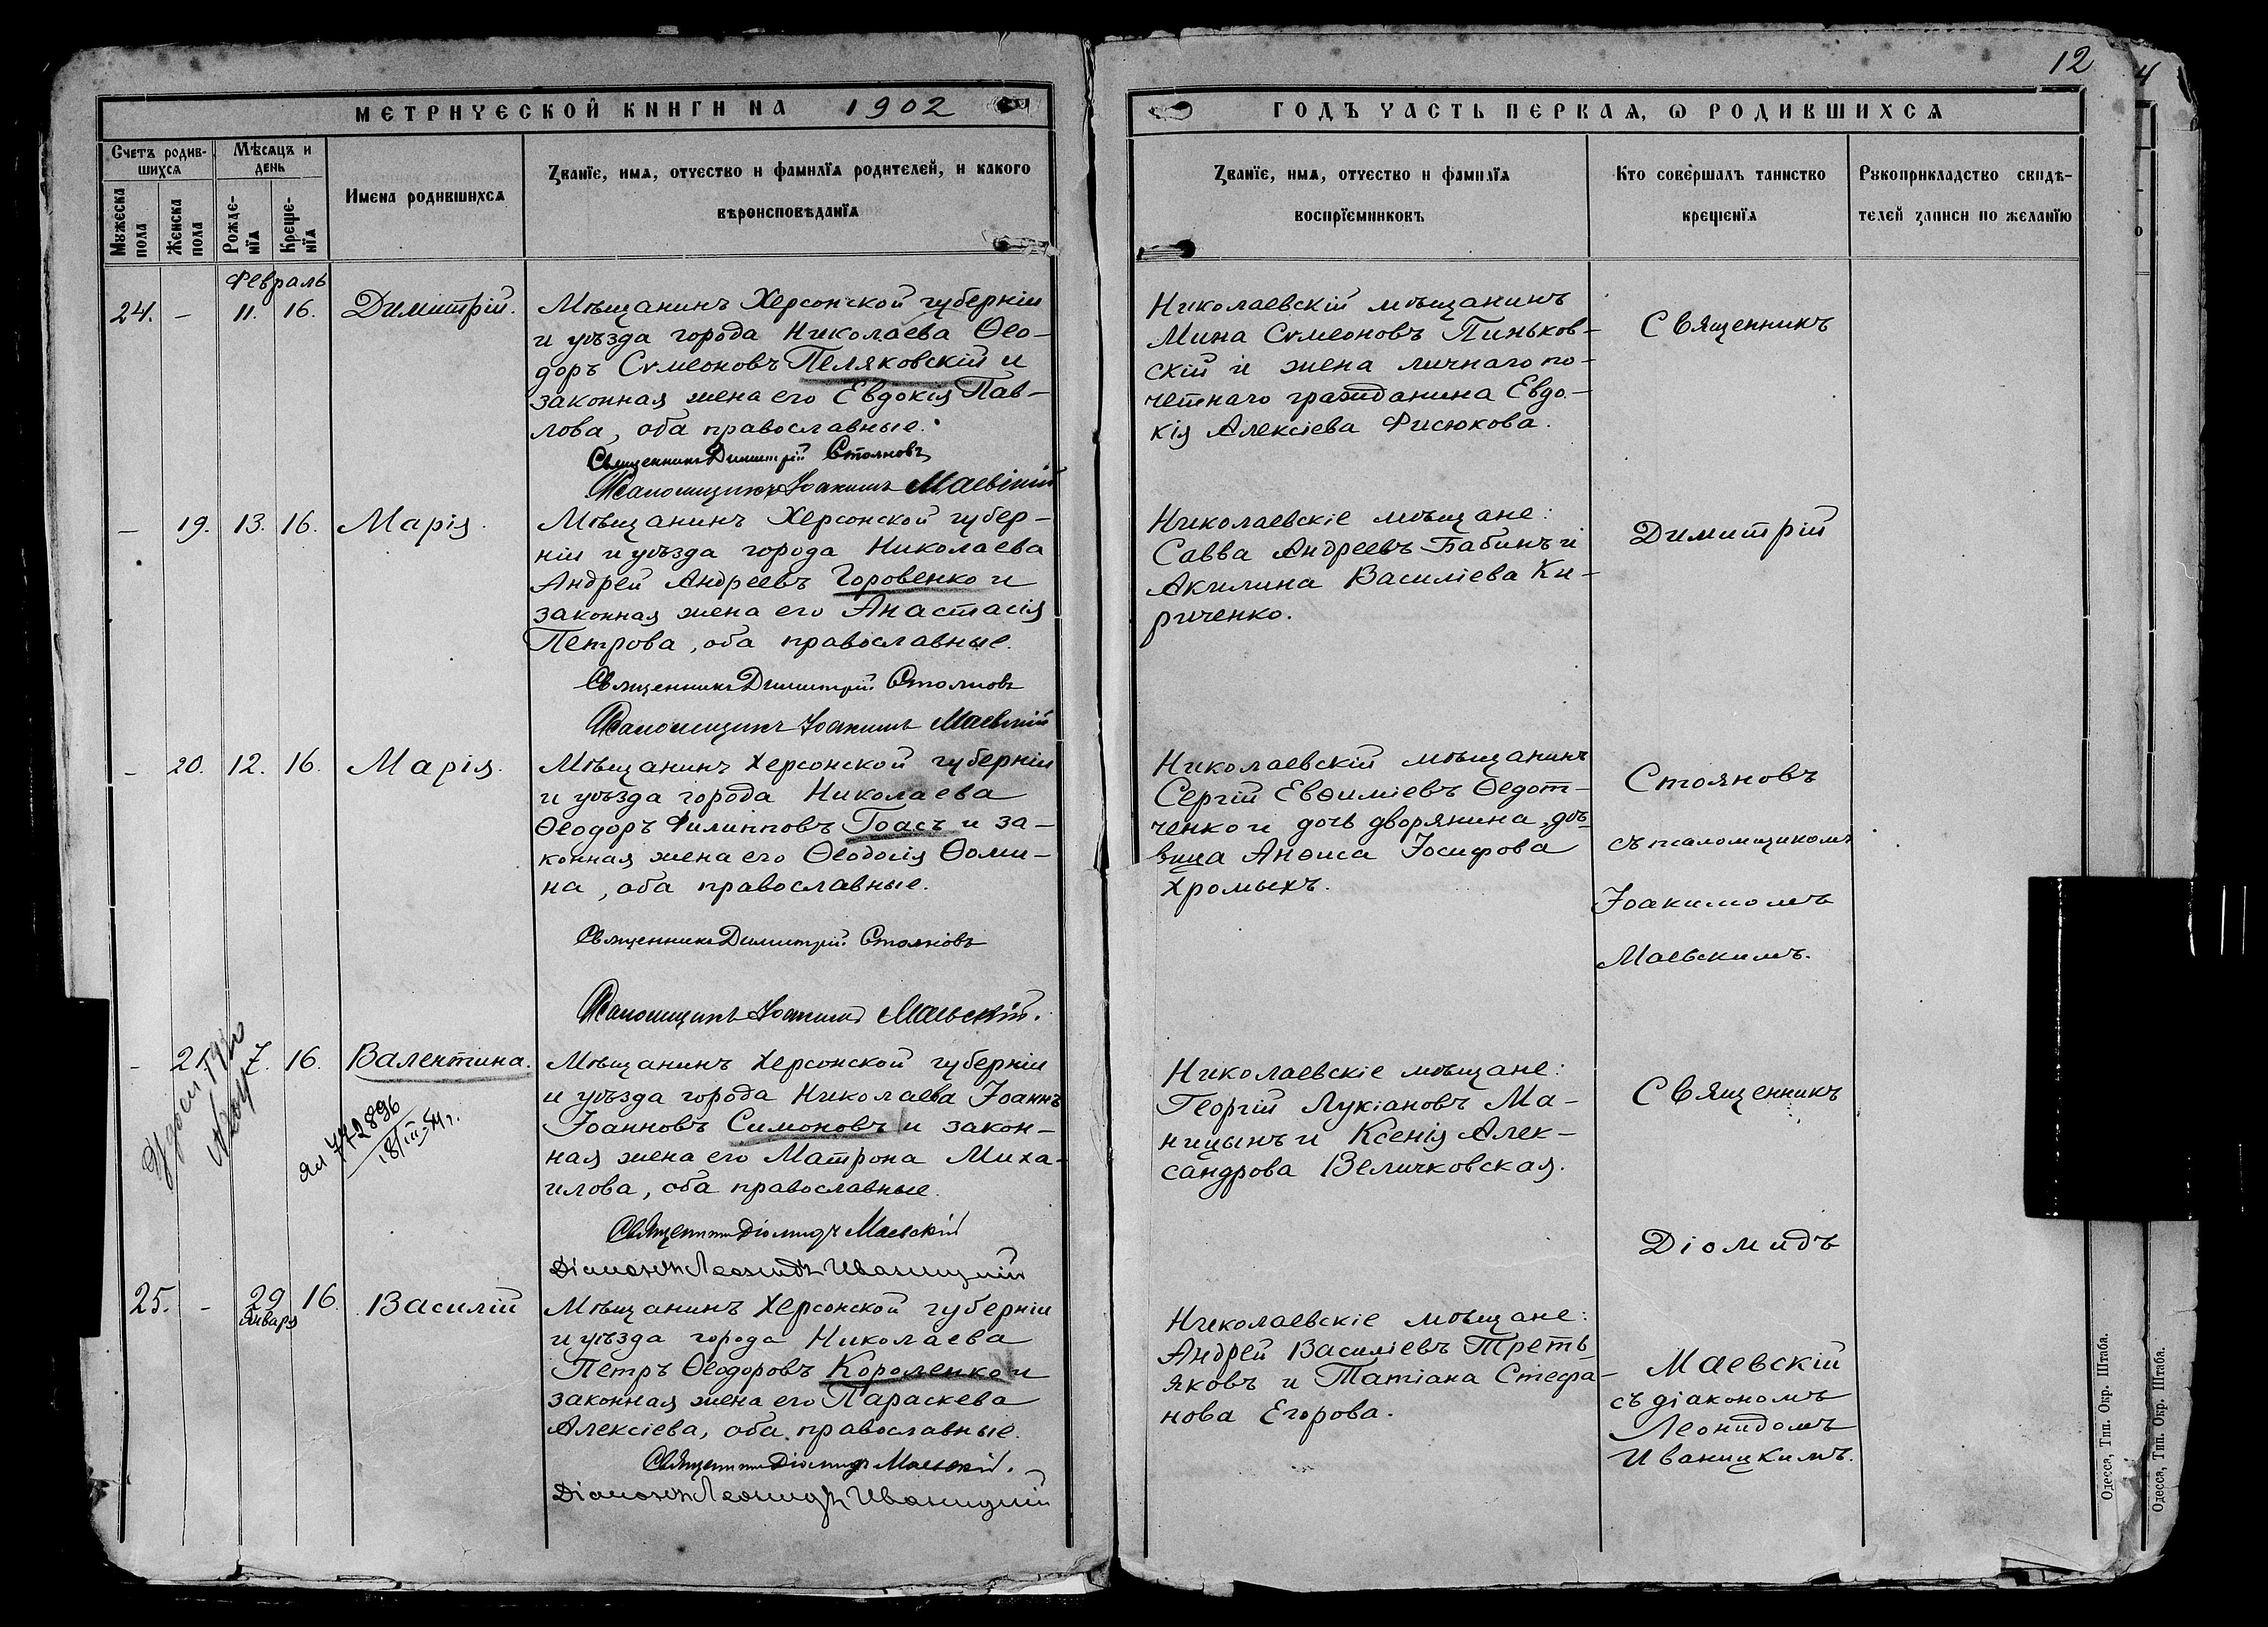 12
МЕТРИЧЕСКОЙ КНИГИ НА 1902
ГОДЪ ЧАСТЬ ПЕРВАЯ, Ѡ РОДИВШИХСЯ
Счетъ родив-
шихся
Мѣсяцъ и
день
Мужеска
пола
Женска
пола
Рожде-
нїя
Креще-
нїя
Имена родившихся
Званїе, имя, отчество и фамилїя родителей, и какого
вѣроисповѣданїя
Званїе, имя, отчество и фамилїя
воспрїемниковъ
Кто совершалъ таинство
крещенїя
Рукоприкладство свидѣ-
телей записи по желанїю
Февраль
24. - 11. 16. Димитрій.
Мѣщанинъ Херсонской губерніи
и уѣзда города Николаева Ѳео-
доръ Сѵмеоновъ Пеляковскій и
законная жена его Евдокія Пав-
лова, оба православные.
Священникъ Димитрій Стояновъ
Псаломщикъ Іоакимъ Маевскій
Николаевскій мѣщанинъ
Мина Сѵмеоновъ Пиньков-
скій и жена личнаго по-
четнаго гражданина Евдо-
кія Алексіева Фисюкова.
Священникъ
- 19. 13. 16. Марія.
Мѣщанинъ Херсонской губер-
ніи и уѣзда города Николаева
Андрей Андреевъ Горовенко и
законная жена его Анастасія
Петрова, оба православные.
Священникъ Димитрій Стояновъ
Псаломщикъ Іоакимъ Маевскій
Николаевскіе мѣщане:
Савва Андреевъ Бабинъ и
Акилина Василіева Ки-
риченко.
Димитрій
- 20. 12. 16. Марія.
Мѣщанинъ Херсонской губерніи
и уѣзда города Николаева
Ѳеодоръ Филипповъ Гоасъ и за-
конная жена его Ѳеодосія Ѳоми-
на, оба православные.
Священникъ Димитрій Стояновъ
Псаломщикъ Іоакимъ Маевскій.
Николаевскій мѣщанинъ
Сергій Евѳиміевъ Ѳедот-
ченко и дочь дворянина, дѣ-
вица Анѳиса Іосифова
Хромыхъ.
Стояновъ
съ псаломщикомъ
Іоакимомъ
Маевскимъ.
- 21. 7. 16. Валентина.
772896
18/III-41г.
Мѣщанинъ Херсонской губерніи
и уѣзда города Николаева Іоаннъ
Іоанновъ Симоновъ и закон-
ная жена его Матрона Миха-
илова, оба православные.
Священникъ Діомидъ Маевскій
Діаконъ Леонидъ Иваницкій
Николаевскіе мѣщане:
Георгій Лукіановъ Ма-
ницынъ и Ксенія Алек-
сандрова Величковская.
Священникъ
Діомидъ
25. - 29 16. Василій
Января
Мѣщанинъ Херсонской губерніи
и уѣзда города Николаева
Петръ Ѳеодоровъ Короленко и
законная жена его Параскева
Алексіева, оба православные.
Священникъ Діомидъ Маевскій.
Діаконъ Леонидъ Иваницкій
Николаевскіе мѣщане:
Андрей Василіевъ Треть-
яковъ и Татіана Стефа-
нова Егорова.
Маевскій
съ діакономъ
Леонидомъ
Иваницкимъ.
Одесса, Тип. Окр. Штаба.
Одесса, Тип. Окр. Штаба.